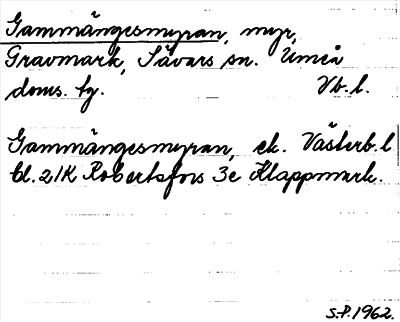 Gammängesmyran, myr,
Gravmark, Sävars sn. Umeå
doms. hg. Vb. l.
Gammängesmyran, ek. Västerb. l
bl. 21K Robertsfors 3e Klappmark.
S.P. 1962.